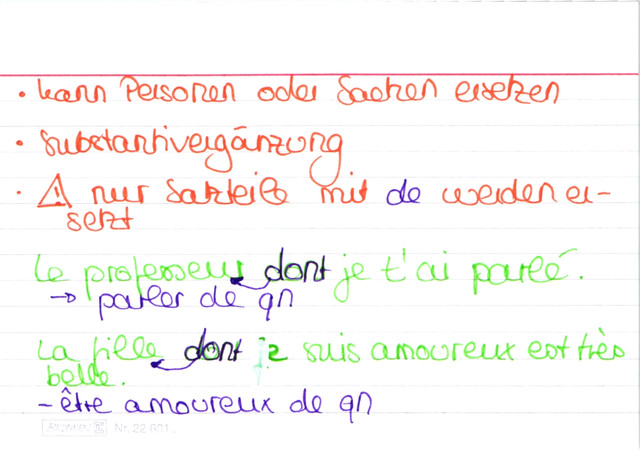 • kann Personen oder Sachen ersetzen
• Substantivergänzung
• ⚠ nur Satzteile mit de werden er-
setzt
Le professeur dont je t'ai parlé.
→ parler de qn
La fille dont je suis amoureux est très
belle.
- être amoureux de qn
Nr. 22 601